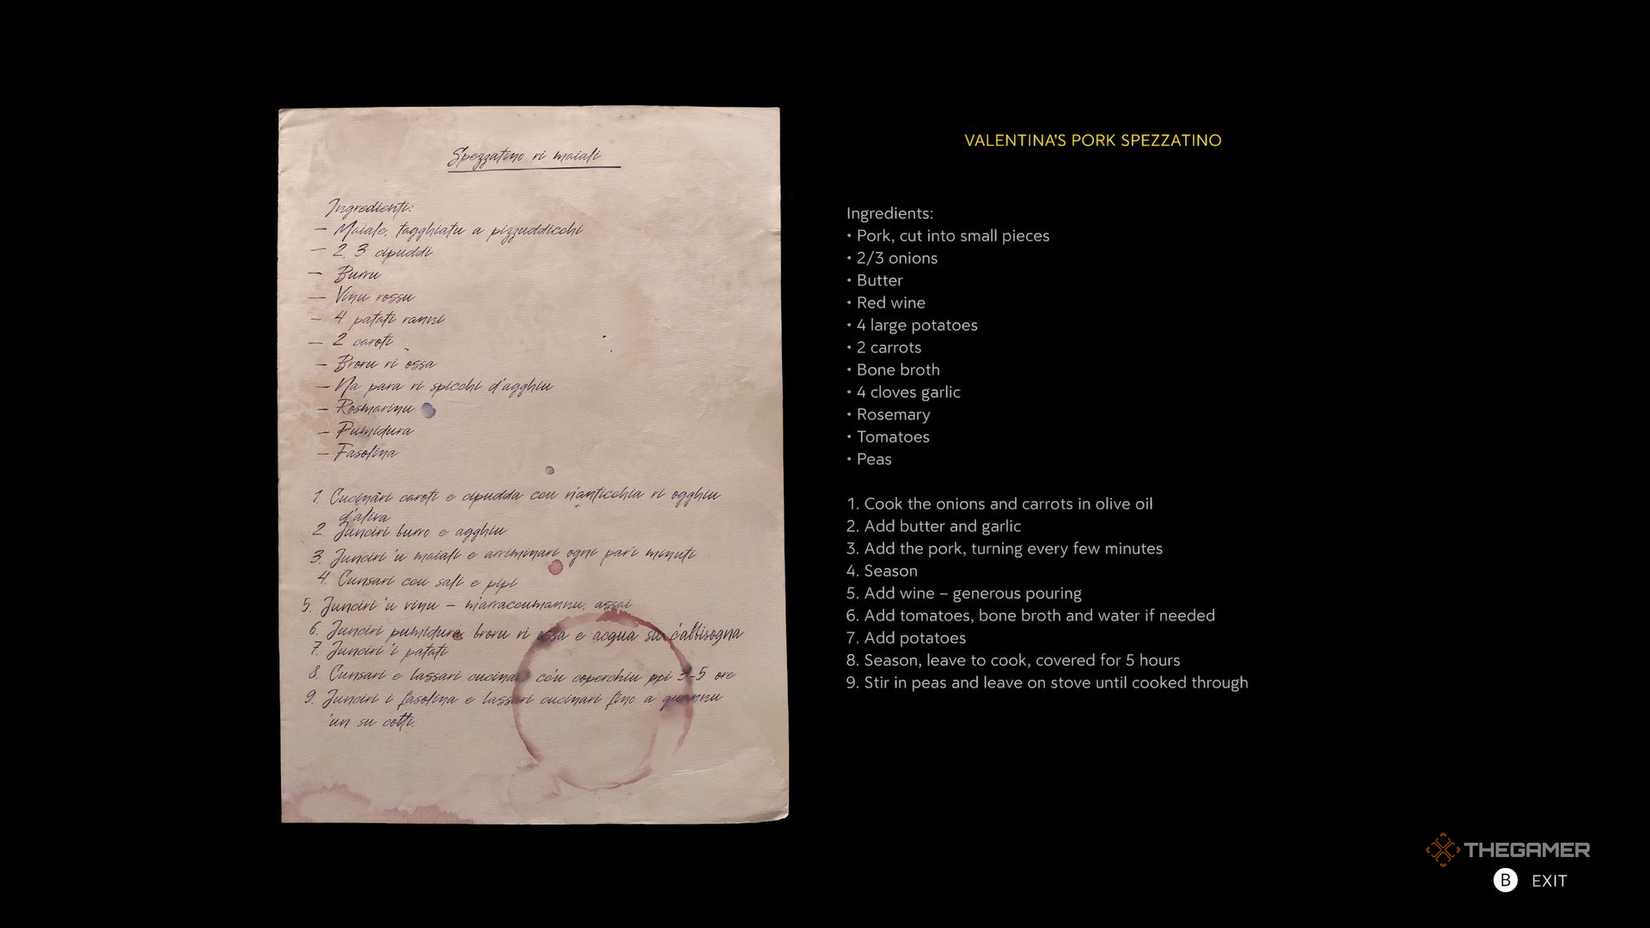 Spezzatino ri maiali
Ingredienti:
– Maiale, tagghiatu a pizzuddicchi
– 2, 3 cipuddi
– Burru
– Vinu rossu
– 4 patati ranni
– 2 caroti
– Broru ri ossa
– Na para ri spicchi d'agghiu
– Rosmarinu
– Pumidura
– Fasolina
1. Cucinari caroti e cipudda cou n'anticchia ri ogghiu
d'aliva
2. Junciri burro e agghiu
3. Junciri 'u maiali e arriminari ogni pari minuti
4. Cunsari cou sali e pipi
5. Junciri 'u vinu – m'arraccumannu, assai
6. Junciri pumidura, broru ri ossa e acqua su c'abbisogna
7. Junciri 'i patati
8. Cunsari e lassari cucinari cou coperchiu ppi 3-5 ore
9. Junciri i fasolina e lassari cucinari fino a quannu
'un su cotti.
VALENTINA'S PORK SPEZZATINO
Ingredients:
• Pork, cut into small pieces
• 2/3 onions
• Butter
• Red wine
• 4 large potatoes
• 2 carrots
• Bone broth
• 4 cloves garlic
• Rosemary
• Tomatoes
• Peas
1. Cook the onions and carrots in olive oil
2. Add butter and garlic
3. Add the pork, turning every few minutes
4. Season
5. Add wine – generous pouring
6. Add tomatoes, bone broth and water if needed
7. Add potatoes
8. Season, leave to cook, covered for 5 hours
9. Stir in peas and leave on stove until cooked through
THEGAMER
B EXIT